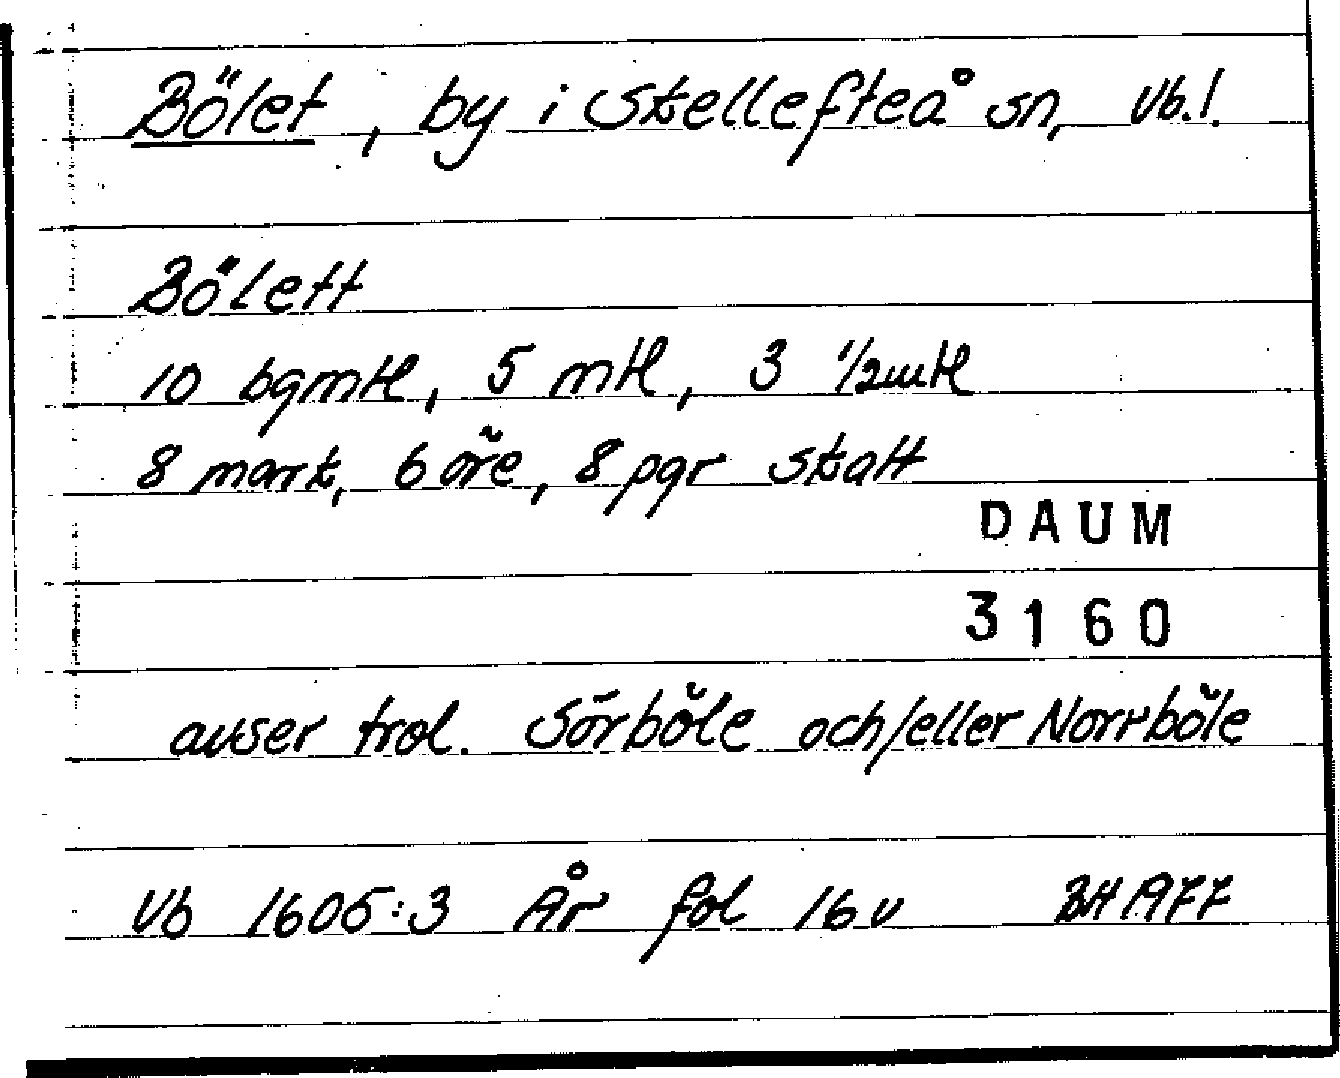 Bölet, by i Skellefteå sn, Vb.l.
Bölett
10 bgmtl, 5 mtl, 3 1/2mtl
8 mark, 6 öre, 8 pgr skatt
DAUM
3160
avser trol. Sörböle och/eller Norrböle
Vb 1605:3 År fol 16v BH 1977